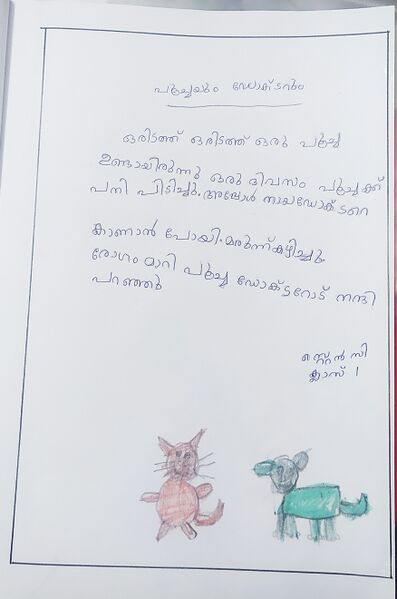 പൂച്ചയും ഡോക്ടറും
ഒരിടത്ത് ഒരിടത്ത് ഒരു പൂച്ച
ഉണ്ടായിരുന്നു ഒരു ദിവസം പൂച്ചക്ക്
പനി പിടിച്ചു. അപ്പോൾ നായഡോക്ടറെ
കാണാൻ പോയി. മരുന്ന് കഴിച്ചു.
രോഗം മാറി പൂച്ച ഡോക്ടറോട് നന്ദി
പറഞ്ഞു
സി
ക്ലാസ് 1